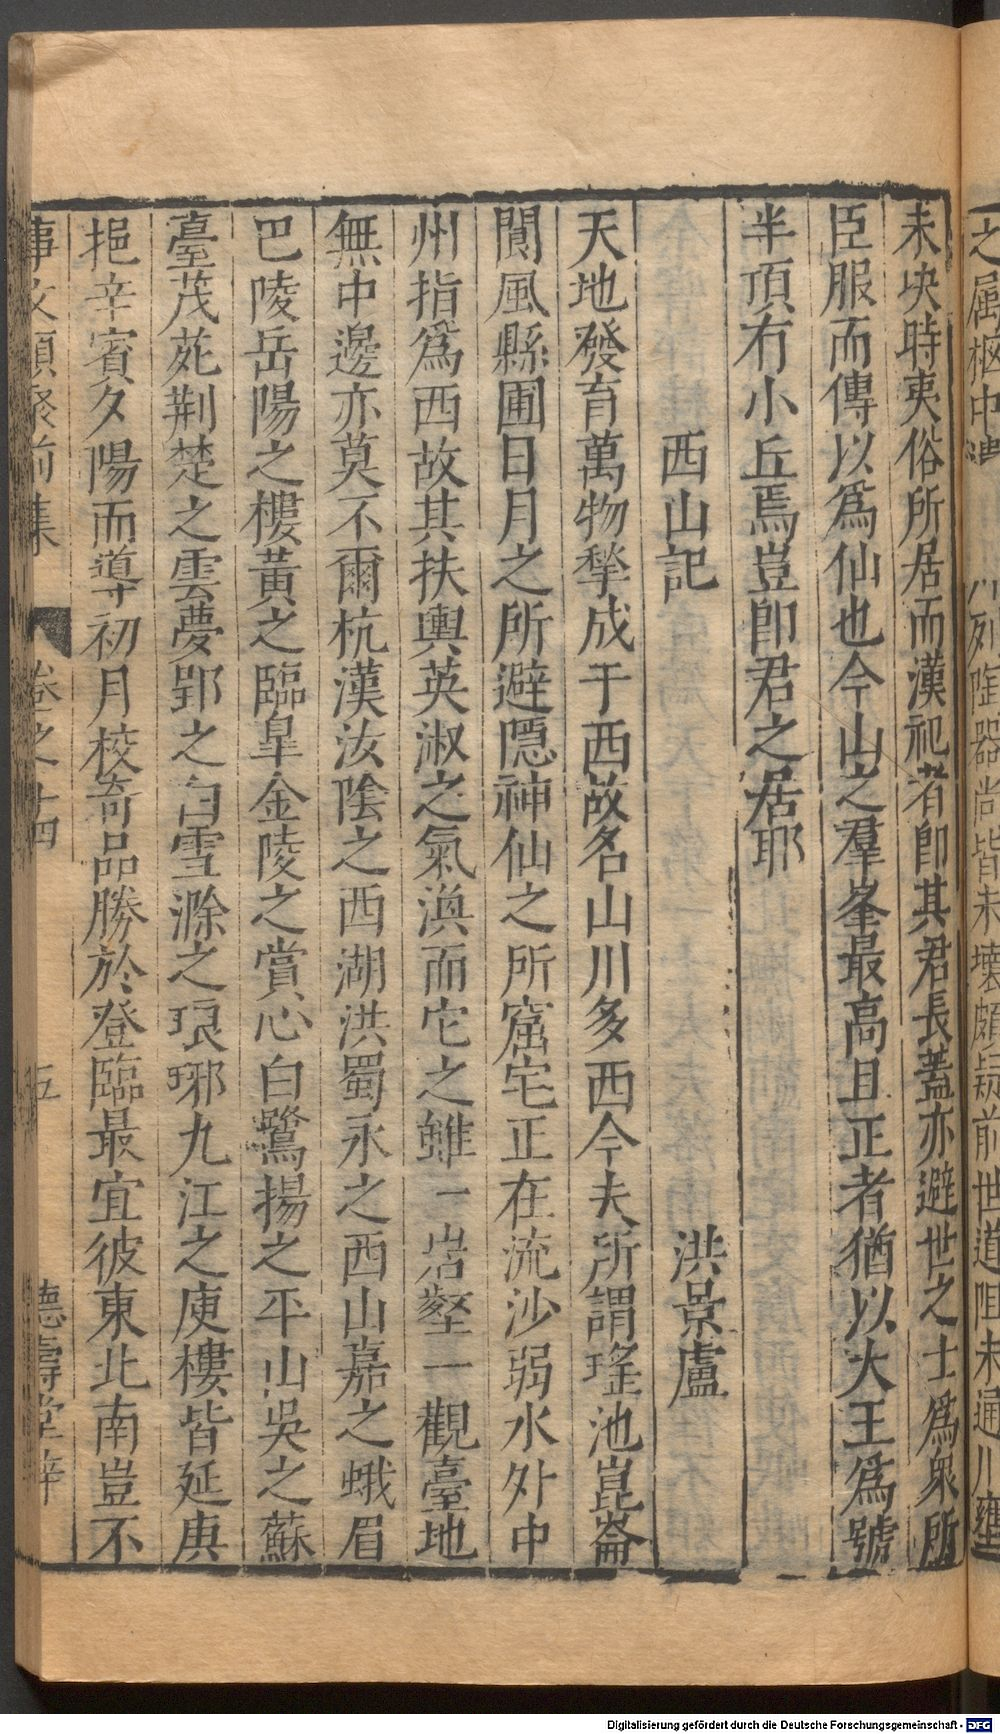 之属柩中
列陶器尚皆未壊頗疑前世道阻未通川壅
未决時夷俗所居而漢祀者即其君長蓋亦避世之士為衆所
臣服而傳以為仙也今山之羣峯最高且正者猶以大王為號
半頂有小丘焉豈即君之居耶
西山記
洪景盧
天地發育萬物揫成于西故名山川多西今夫所謂瑤池崑崙
閬風縣圃日月之所避隱神仙之所窟宅正在流沙弱水外中
州指為西故其扶輿英淑之氣渙而它之雖一岩壑一觀臺地
無中邊亦莫不爾杭漢汝陰之西湖洪蜀永之西山嘉之蛾眉
巴陵岳陽之樓黃之臨皐金陵之賞心白鷺揚之平山吳之蘇
臺茂苑荆楚之雲夢郢之白雪滁之琅琊九江之庾樓皆延庚
挹辛賓夕陽而導初月校奇品勝於登臨最宜彼東北南豈不
事文類聚前集
卷之十四
五
德壽堂梓
Digitalisierung gefördert durch die Deutsche Forschungsgemeinschaft - DFG